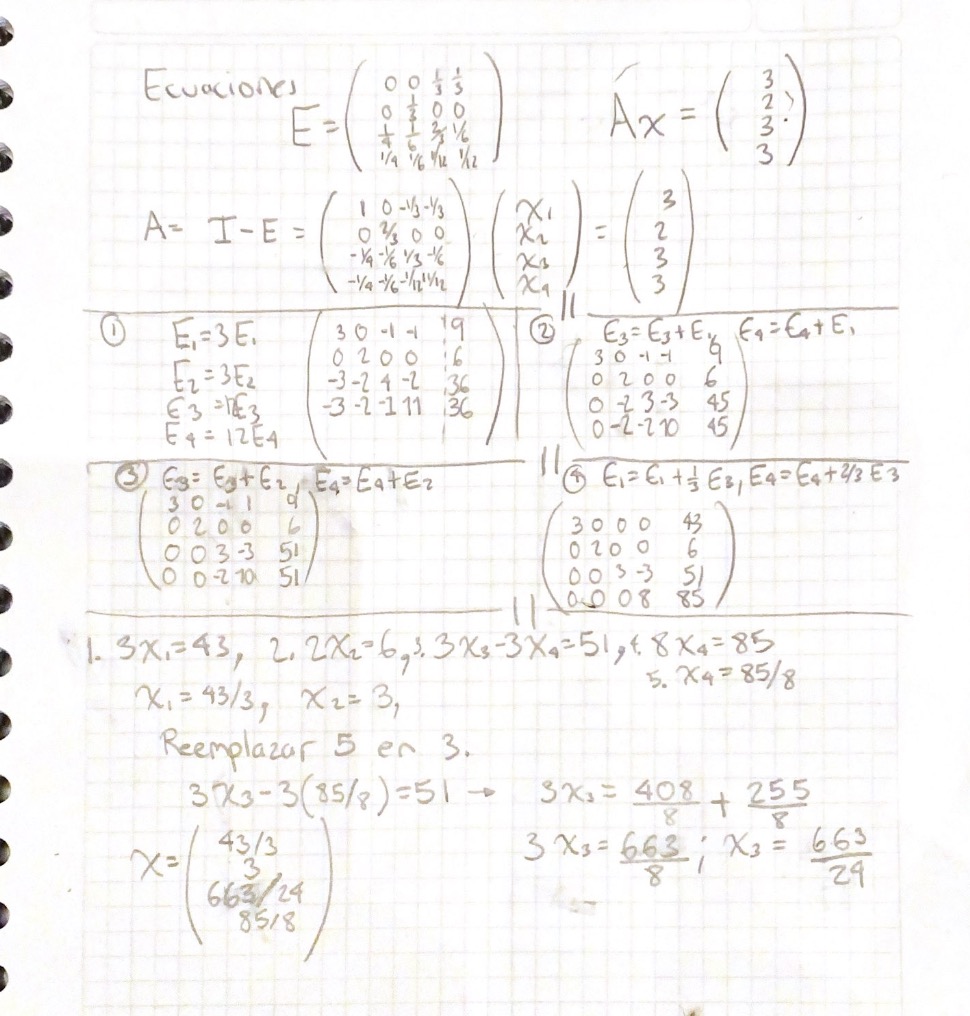 Ecuaciones
E = ( 0 0 1/3 1/3
0 1/3 0 0
1/4 1/6 2/3 1/6
1/4 1/6 1/12 1/12 )
Ax = ( 3
2
3
3 )
A = I - E = ( 1 0 -1/3 -1/3
0 2/3 0 0
-1/4 -1/6 1/3 -1/6
-1/4 -1/6 -1/12 11/12 ) ( x1
x2
x3
x4 ) = ( 3
2
3
3 )
① E1 = 3E1
E2 = 3E2
E3 = 12E3
E4 = 12E4
( 3 0 -1 -1 | 9
0 2 0 0 | 6
-3 -2 4 -2 | 36
-3 -2 -1 11 | 36 )
② E3 = E3 + E1, E4 = E4 + E1
( 3 0 -1 -1 9
0 2 0 0 6
0 -2 3 -3 45
0 -2 -2 10 45 )
③ E3 = E3 + E2, E4 = E4 + E2
( 3 0 -1 1 9
0 2 0 0 6
0 0 3 -3 51
0 0 -2 10 51 )
④ E1 = E1 + 1/3 E3, E4 = E4 + 2/3 E3
( 3 0 0 0 43
0 2 0 0 6
0 0 3 -3 51
0 0 0 8 85 )
1. 3x1 = 43, 2. 2x2 = 6, 3. 3x3 - 3x4 = 51, 4. 8x4 = 85
5. x4 = 85/8
x1 = 43/3, x2 = 3,
Reemplazar 5 en 3.
3x3 - 3(85/8) = 51 → 3x3 = 408/8 + 255/8
3x3 = 663/8 ; x3 = 663/24
x = ( 43/3
3
663/24
85/8 )